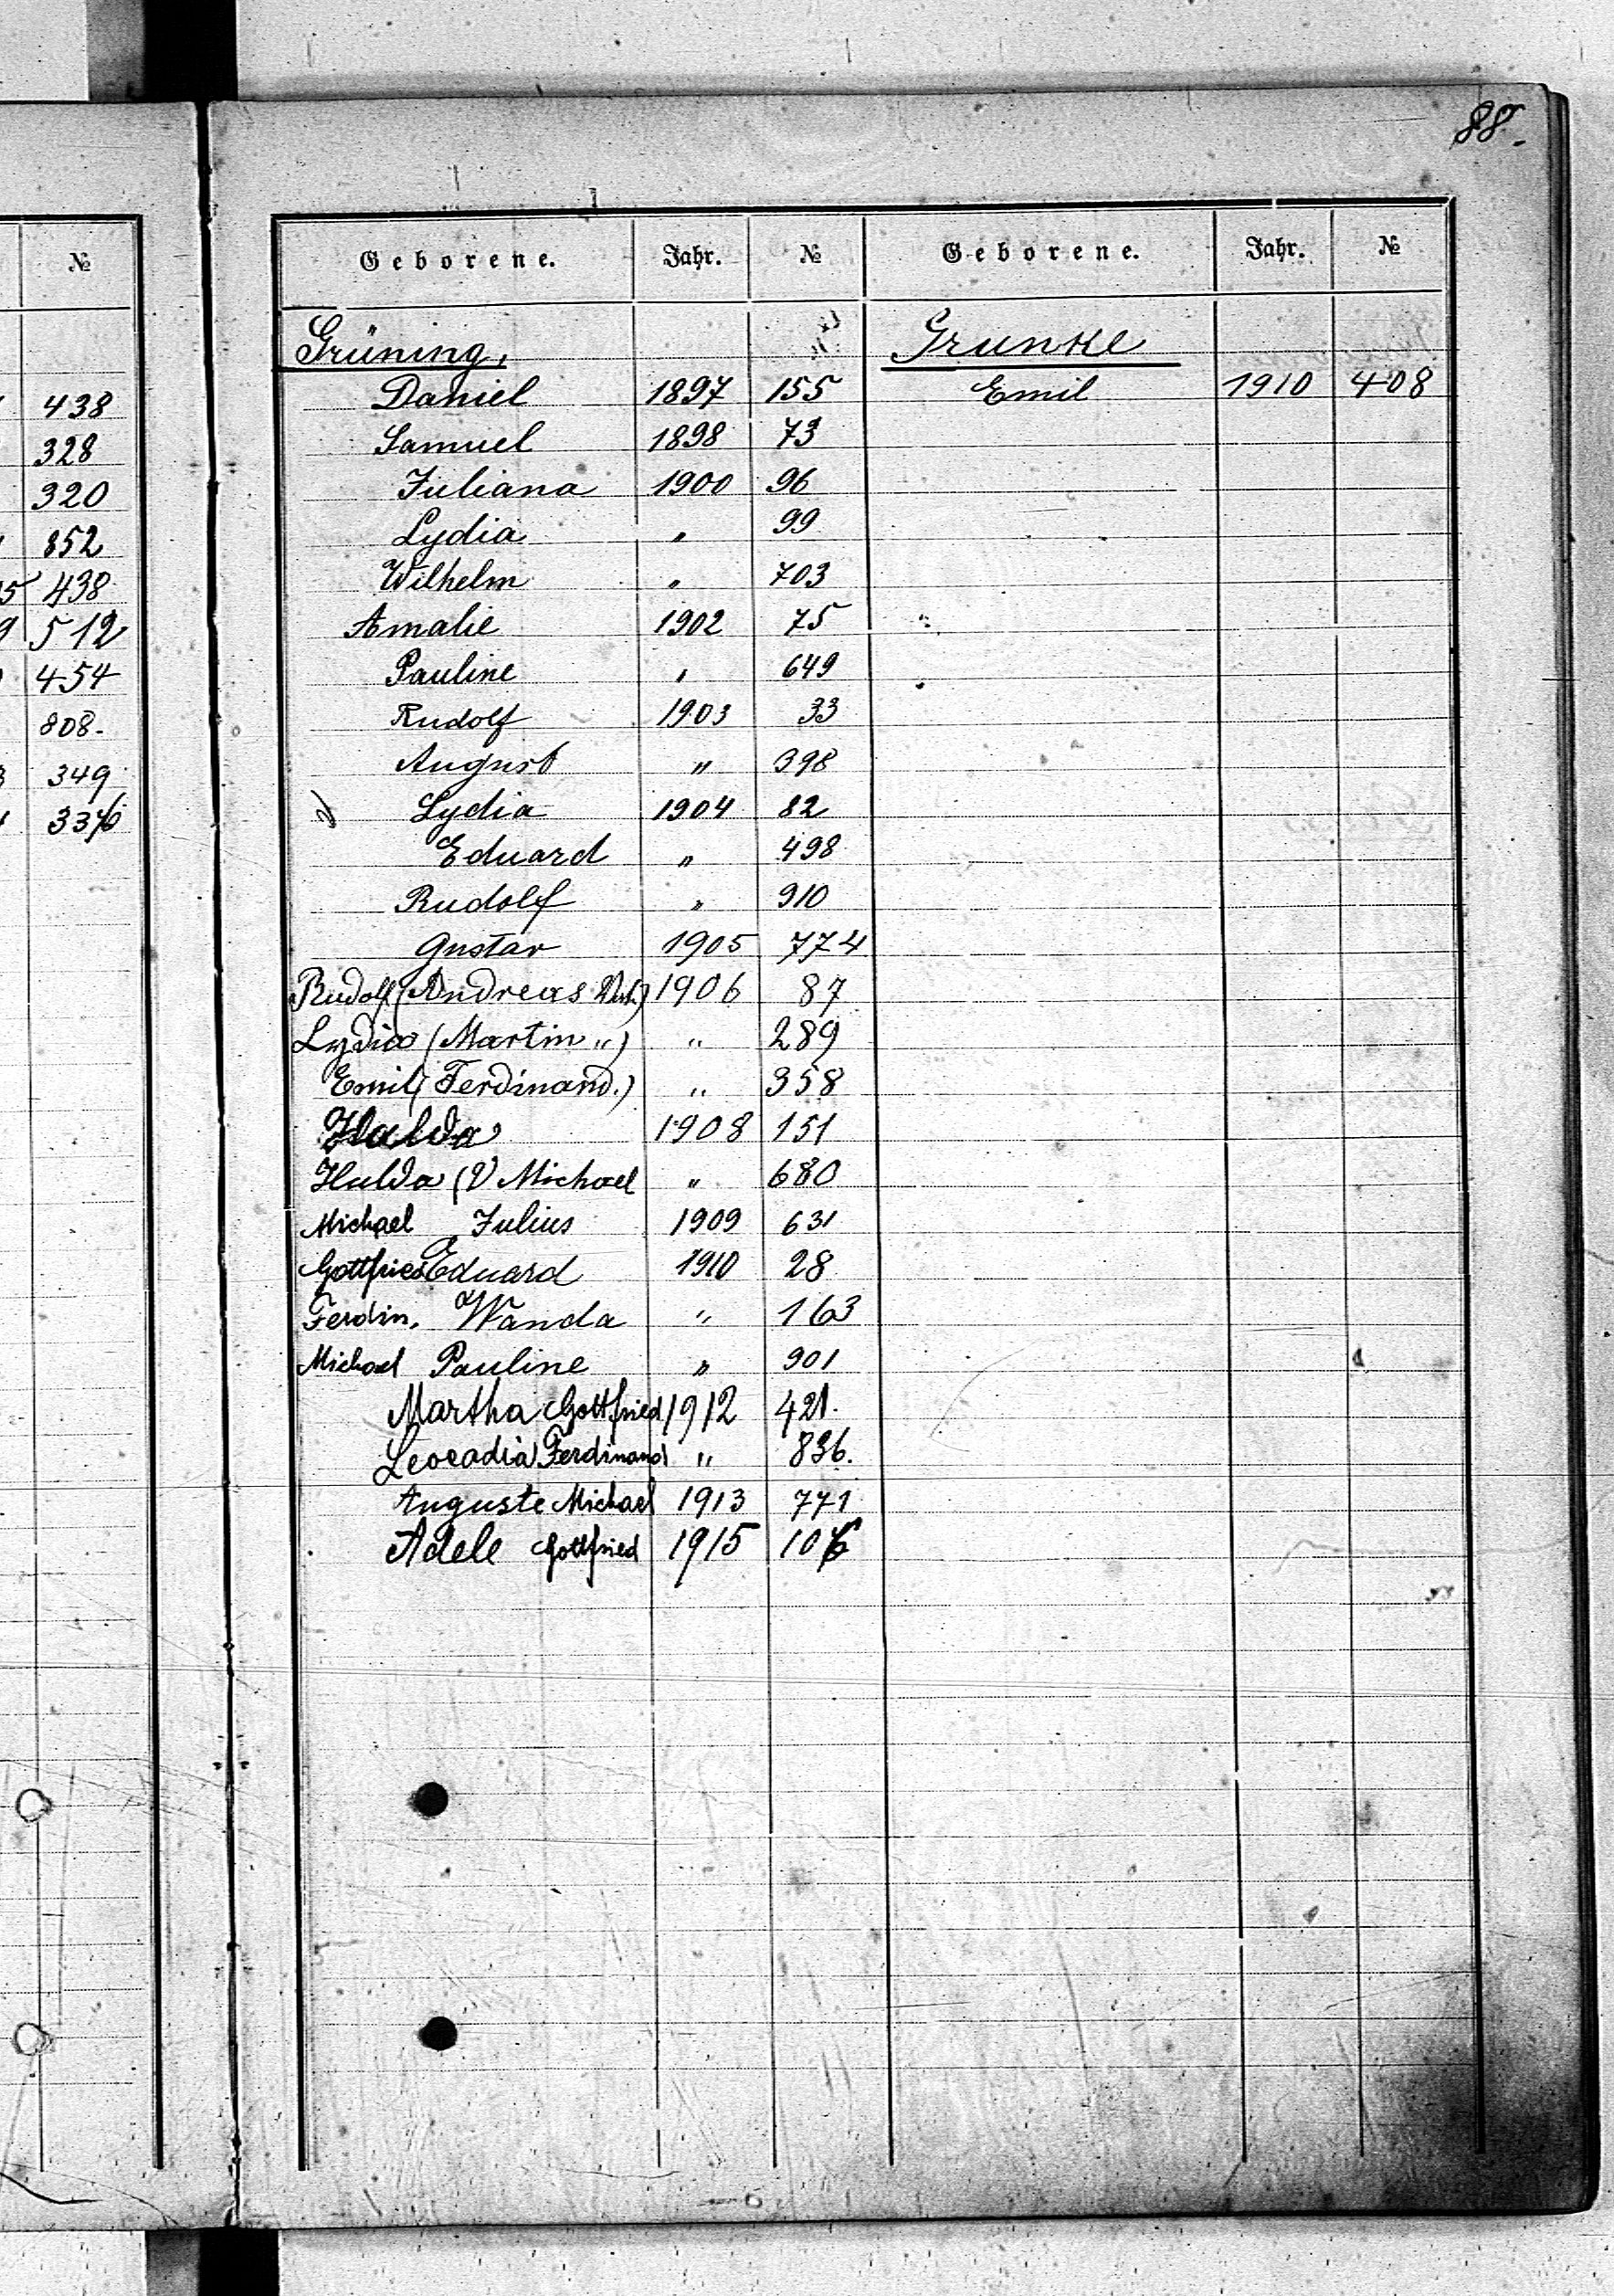 88.
№
438
328
320
852
5 438
9 512
454
808.
349
336
Geborene. Jahr. № Geborene. Jahr. №
Grüning, Grunke
Daniel 1897 155 Emil 1910 408
Samuel 1898 73
Juliana 1900 96
Lydia " 99
Wilhelm " 703
Amalie 1902 75
Pauline " 649
Rudolf 1903 33
August " 398
Lydia 1904 82
Eduard " 498
Rudolf " 910
Gustav 1905 774
Rudolf (Andreas 1906 87
Lydia (Martin ") " 289
Emil (Ferdinand.) " 358
Hulda 1908 151
Hulda (V Michael " 680
Michael Julius 1909 631
Gottfried Eduard 1910 28
Ferdin. Wanda " 163
Michael Pauline " 901
Martha Gottfried 1912 421.
Leocadia Ferdinand " 836.
Auguste Michael 1913 771
Adele Gottfried 1915 106